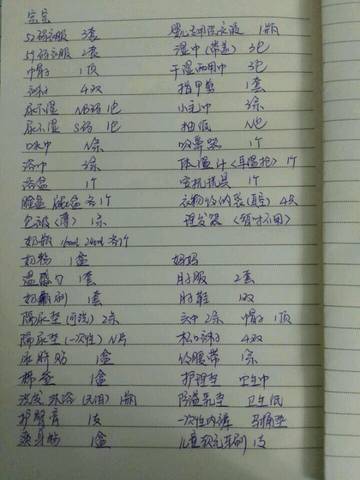 宝宝
52码衣服 3套
59码衣服 2套
帽子 1顶
袜子 4双
尿不湿 NB码 1包
尿不湿 S码 1包
口水巾 N条
浴巾 3条
浴盆 1个
脸盆 脚盆 各1个
包被(薄) 1条
奶瓶 160ml 240ml 各1个
奶粉 1盒
温感勺 1套
奶瓶刷 1套
隔尿垫(可洗) 2条
隔尿垫(一次性) N片
护肚脐贴 1盒
棉签 1盒
洗发 沐浴(二合一) 1瓶
护臀膏 1支
爽身粉 1盒
婴儿洗衣液 1瓶
湿巾(带盖) 3包
干湿两用巾 3包
指甲剪 1套
小毛巾 3条
抽纸 N包
吸鼻器 1个
体温计(耳温枪) 1个
安抚摇篮 1个
衣物收纳袋(真空) 4只
理发器 (暂时不用)
妈妈
月子服 2套
月子鞋 1双
头巾 2条 帽子 1顶
松口袜子 4双
收腹带 1条
护理垫 卫生巾
防溢乳垫 卫生纸
一次性内裤 马桶垫
儿童软毛牙刷 1支